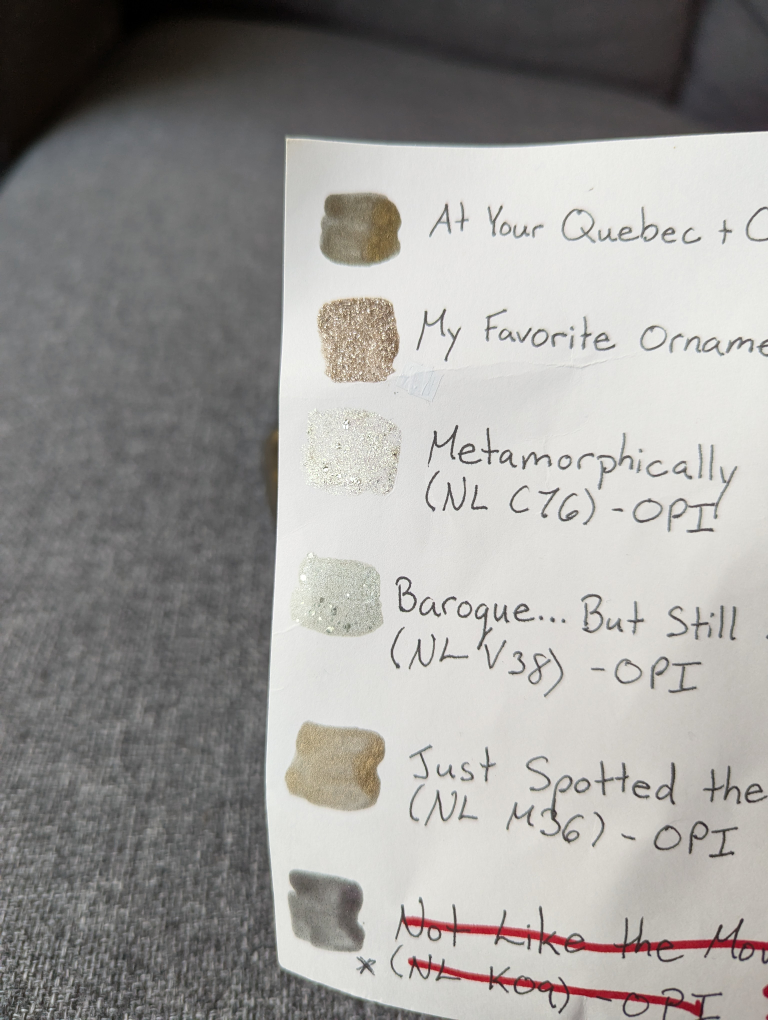 At Your Quebec + C
My Favorite Orname
Metamorphically
(NL C76) - OPI
Baroque... But Still
(NL V38) - OPI
Just Spotted the
(NL M36) - OPI
Not Like the Mov
* (NL K09) - OPI